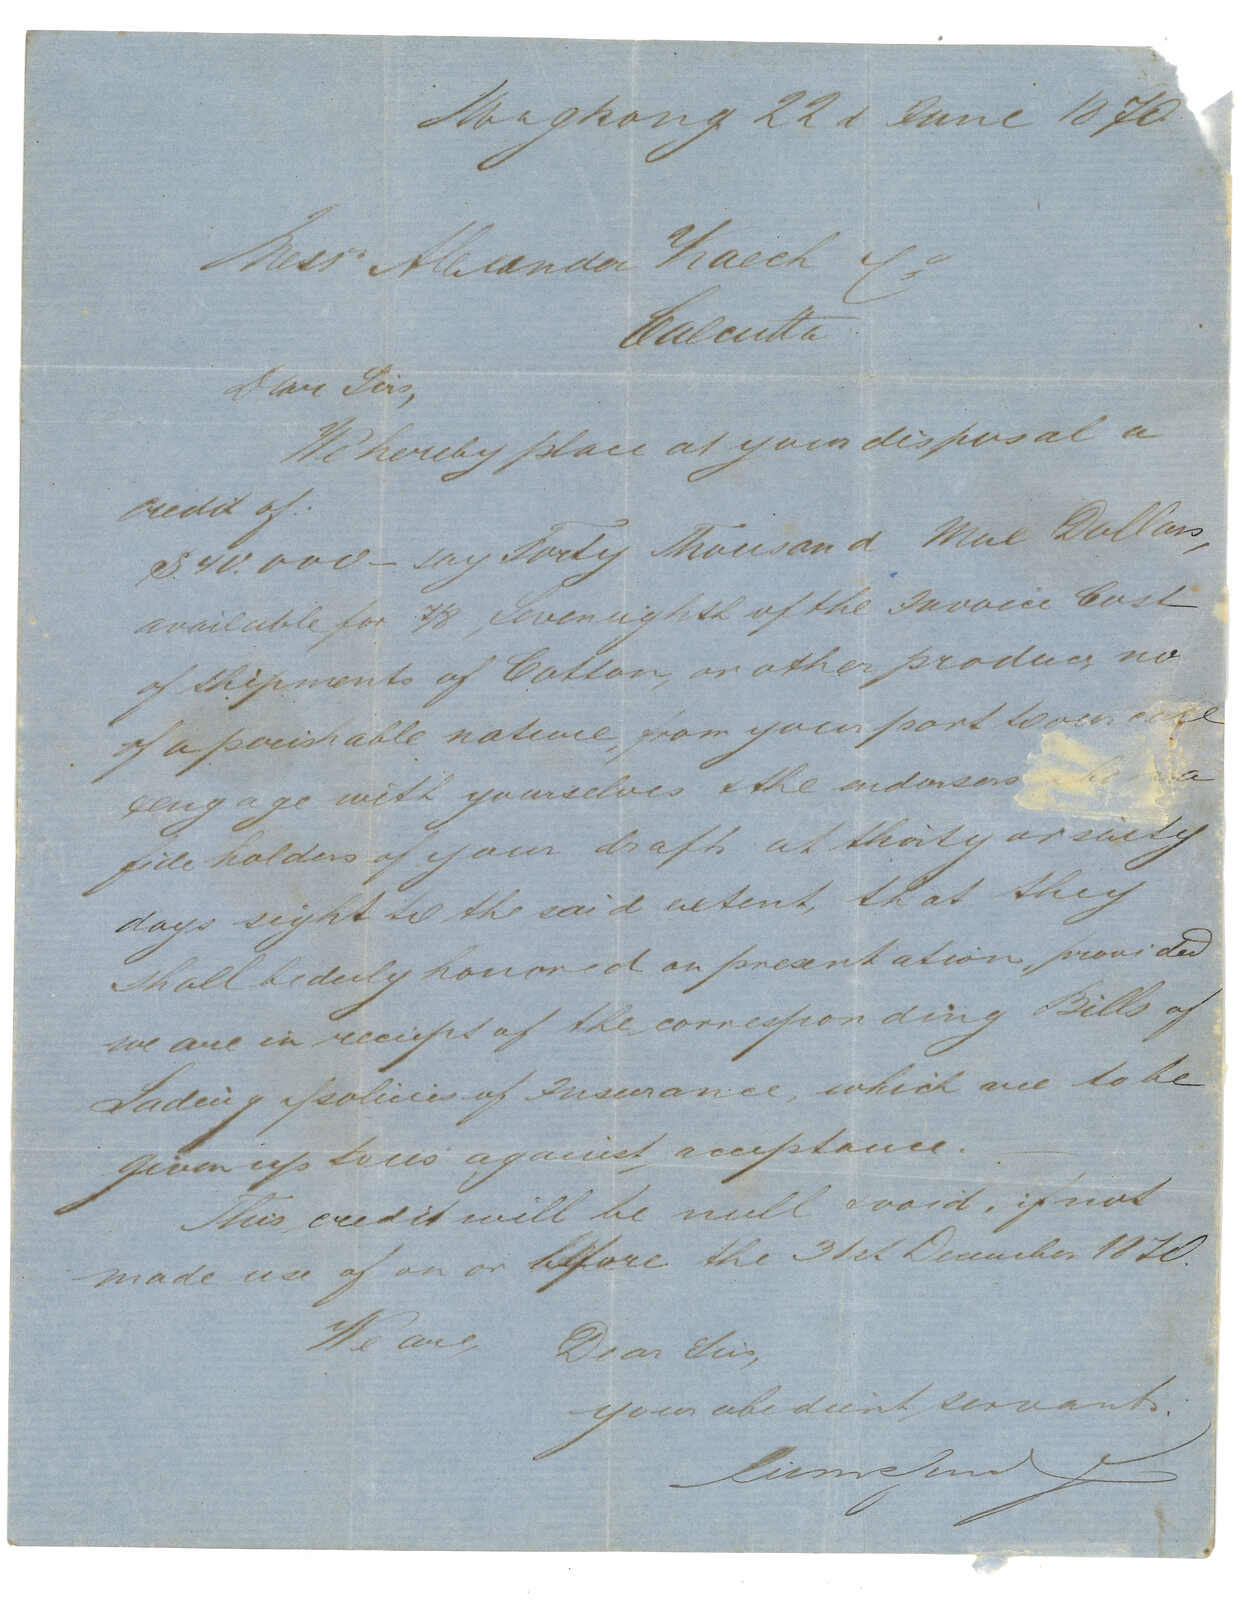 Hongkong 22d June 1870
Messrs Alexander & Co
Calcutta
Dear Sirs,
We hereby place at your disposal a
credit of:
$.40.000 – say Forty Thousand Mex Dollars,
available for 7/8, Seven eighth of the Invoice Cost
of Shipments of Cotton, or other produce, no
of a perishable nature, from your port to our care
& engage with yourselves & the endorsers
fide holders of your drafts at thirty or sixty
days sight to the said extent, that they
shall be duly honored on presentation, provided
we are in receipt of the corresponding Bills of
Lading & policies of Insurance, which are to be
given up to us against acceptance.
This credit will be null & void, if not
made use of on or before the 31st December 1870.
We are,
Dear Sirs,
your obedient servants.